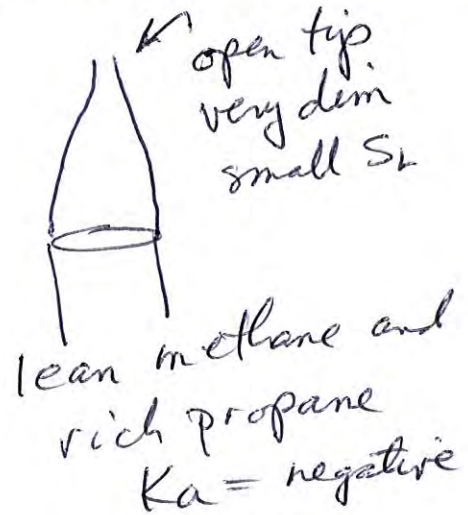 open tip
very dim
small SL
lean methane and
rich propane
Ka = negative